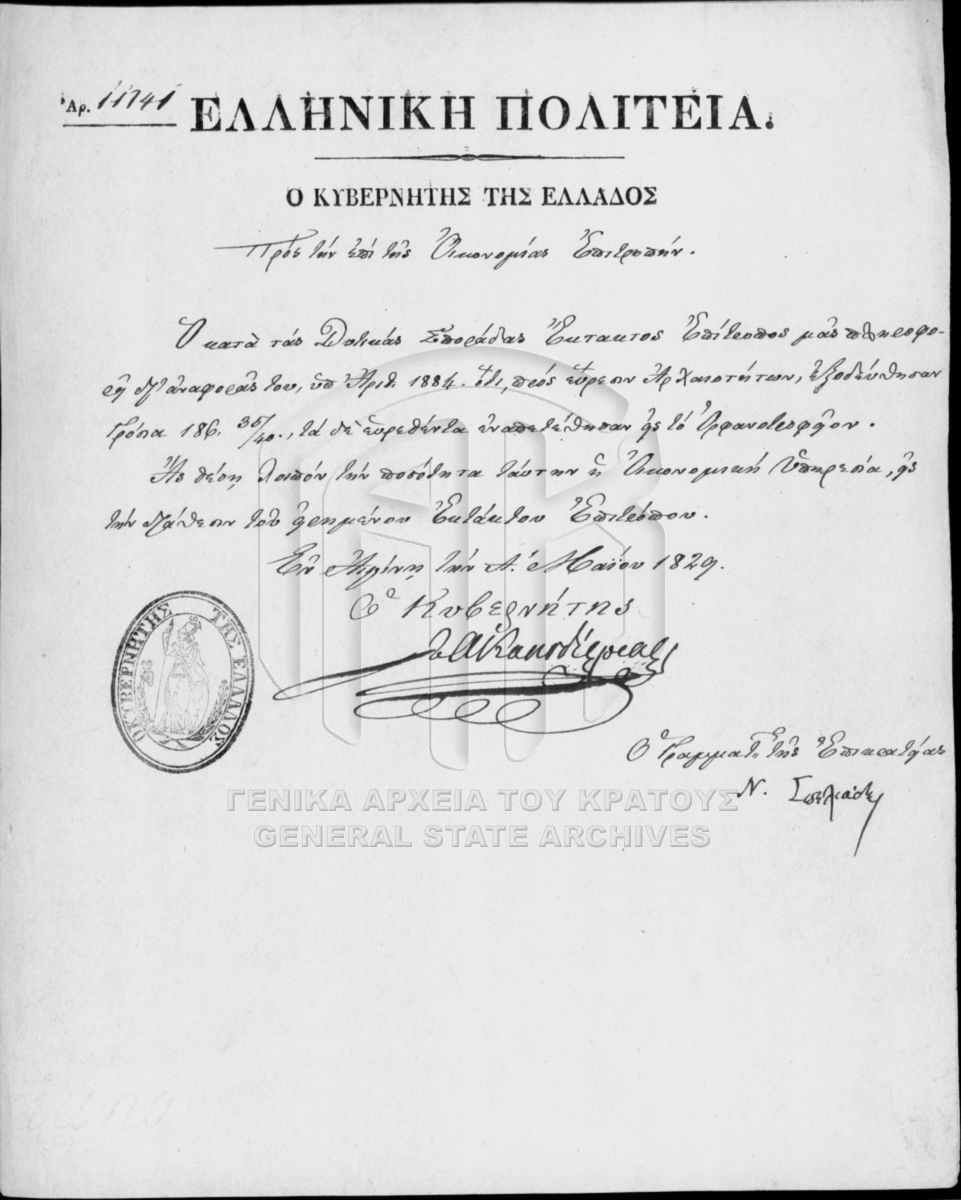 Ἀρ. 11741
ΕΛΛΗΝΙΚΗ ΠΟΛΙΤΕΙΑ.
Ο ΚΥΒΕΡΝΗΤΗΣ ΤΗΣ ΕΛΛΑΔΟΣ
Πρὸς τὴν ἐπὶ τῆς Οἰκονομίας Ἐπιτροπήν.
Ὁ κατὰ τὰς Δυτικὰς Σποράδας Ἔκτακτος Ἐπίτροπος μᾶς πληροφο-
ρεῖ δι' ἀναφορᾶς του, ὑπ' Ἀριθ. 1884. ὅτι, πρὸς εὕρεσιν Ἀρχαιοτήτων, ἐξοδεύθησαν
Γρόσια 186. 35/40., τὰ δὲ εὑρεθέντα ἐναπετέθησαν εἰς τὸ Ὀρφανοτροφεῖον.
Ἂς θέσῃ λοιπὸν τὴν ποσότητα ταύτην ἡ Οἰκονομικὴ Ὑπηρεσία, εἰς
τὴν διάθεσιν τοῦ εἰρημένου Ἐκτάκτου Ἐπιτρόπου.
Ἐν Αἰγίνῃ τὴν Α. Μαΐου 1829.
Ὁ Κυβερνήτης
Ι Α Καποδίστριας
Ο ΚΥΒΕΡΝΗΤΗΣ ΤΗΣ ΕΛΛΑΔΟΣ
Ὁ Γραμματ. τῆς Ἐπικρατείας
Ν. Σπηλιάδης
ΓΕΝΙΚΑ ΑΡΧΕΙΑ ΤΟΥ ΚΡΑΤΟΥΣ
GENERAL STATE ARCHIVES